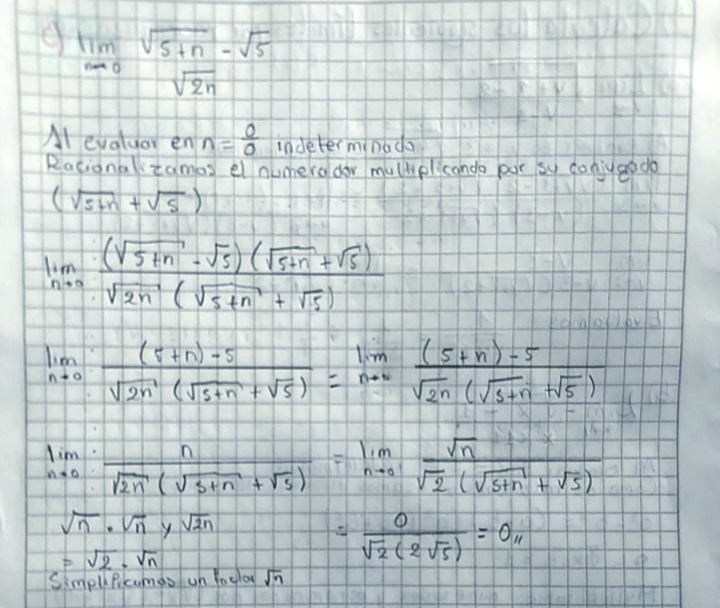 c) lim n→0 √5+n - √5 / √2n
Al evaluar en n = 0/0 indeterminado
Racionalizamos el numerador multiplicando por su conjugado
(√5+n + √5)
lim n→0 (√5+n - √5) (√5+n + √5) / √2n (√5+n + √5)
lim n→0 (5+n) - 5 / √2n (√5+n + √5) = lim n→0 (5+n) - 5 / √2n (√5+n + √5)
lim n→0 n / √2n (√5+n + √5) = lim n→0 √n / √2 (√5+n + √5)
√n . √n y √2n = 0 / √2 (2√5) = 0,,
= √2 . √n
Simplificamos un factor √n